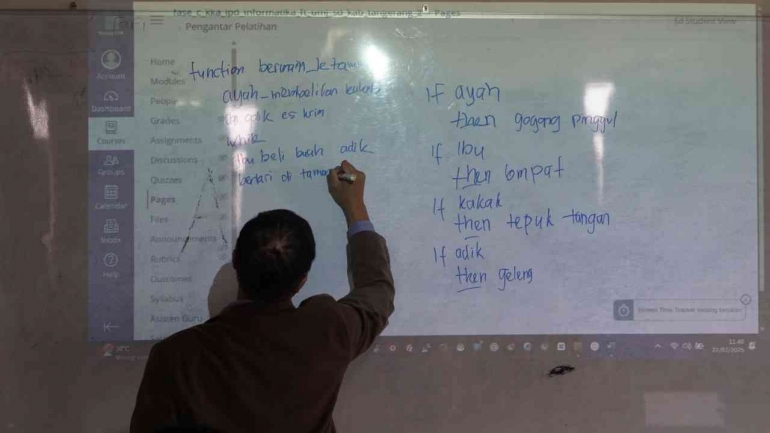 fase_c_kka_ipd_informatika_ft_umj_sd_kab_tangerang_2 Pages
Pengantar Pelatihan
Sd Student View
Account
Dashboard
Courses
Groups
Calendar
Inbox
Help
Home
Modules
People
Grades
Assignments
Discussions
Quizzes
Pages
Files
Announcements
Rubrics
Outcomes
Syllabus
function bermain_ketaman
ayah_
adik es krim
Ibu beli buah adik
berlari di taman
If ayah
then goyang pinggul
if Ibu
then lompat
If kakak
then tepuk tangan
If adik
then geleng
11.40
22/07/2025